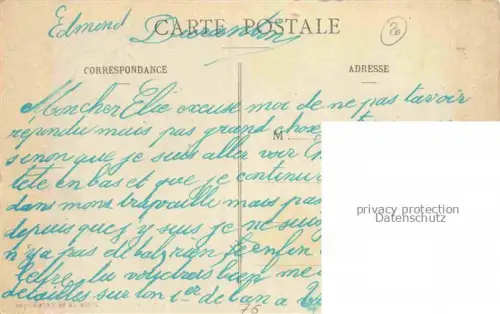 Edmond Durantin
CARTE POSTALE
CORRESPONDANCE
ADRESSE
Mon cher Elie excuse moi de ne pas t'avoir
répondu mais pas grand chose
M
sinon que je suis aller voir
tete en bas et que je continue
dans mons mais pas
depuis que j'y suis je ne suis
n'ya pas de bal rien enfin
bien me
détailles sur ton 1er de l'an a
privacy protection
Datenschutz
76